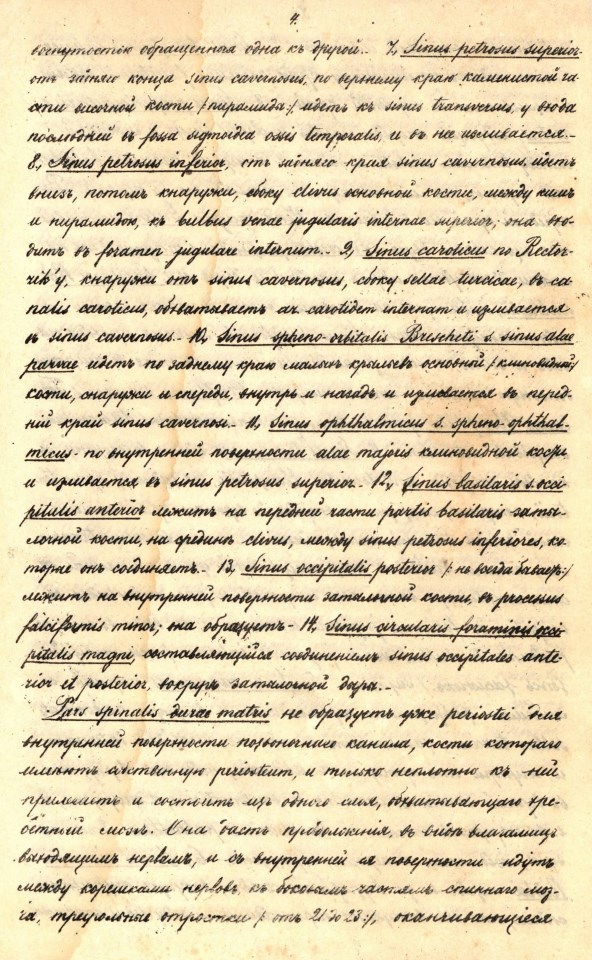 4.
вогнутостью обращенныя одна къ другой.- 7, Sinus petrosus superior-
отъ задняго конца sinus cavernosus, по верхнему краю каменистой ча-
сти височной кости /:пирамида:/ идетъ къ sinus transversus, у входа
послѣдней въ fossa sigmoidea ossis temporalis, и въ нее изливается.-
8, Sinus petrosus inferior, отъ задняго края sinus cavernosus, идетъ
внизъ, потомъ кнаружи, сбоку clivus основной кости, между нимъ
и пирамидою, къ bulbus venae jugularis internae superior; она вхо-
дитъ въ foramen jugulare internum.- 9, Sinus caroticus по Rector-
zik'y, кнаружи отъ sinus cavernosus, сбоку sellae turcicae, въ ca-
nalis caroticus, обхватываетъ ar. carotidem internam и изливается
въ sinus cavernosus.- 10, Sinus spheno-orbitalis Brescheti s. sinus alae
parvae идетъ по заднему краю малыхъ крыльевъ основной /:клиновидной:/
кости, снаружи и спереди, внутрь и назадъ и изливается въ перед-
ній край sinus cavernosi.- 11, Sinus ophthalmicus s. spheno-ophthal-
micus- по внутренней поверхности alae majoris клиновидной кости
и изливается въ sinus petrosus superior.- 12, Sinus basilaris s. occi-
pitalis anterior лежитъ на передней части partis basilaris заты-
лочной кости, на срединѣ clivus, между sinus petrosus inferiores, ко-
торые онъ соединяетъ.- 13, Sinus occipitalis posterior /:не всегда бываетъ:/
лежитъ на внутренней поверхности затылочной кости, въ processus
falciformis minor; она образуетъ- 14, Sinus circularis foraminis occi-
pitalis magni, составляющійся соединеніемъ sinus occipitales ante-
rior et posterior, вокругъ затылочной дыры.-
Pars spinalis durae matris не образуетъ уже periostii для
внутренней поверхности позвоночнаго канала, кости котораго
имѣютъ собственную periosteum, и только неплотно къ ней
прилегаетъ и состоитъ изъ одного слоя, обхватывающаго хре-
бетный мозгъ. Она даетъ продолженія, въ видѣ влагалищъ
выходящимъ нервамъ, и съ внутренней ея поверхности идутъ
между корешками нервовъ, къ боковымъ частямъ спиннаго моз-
га, треугольные отростки /:отъ 21 до 23:/, оканчивающіеся